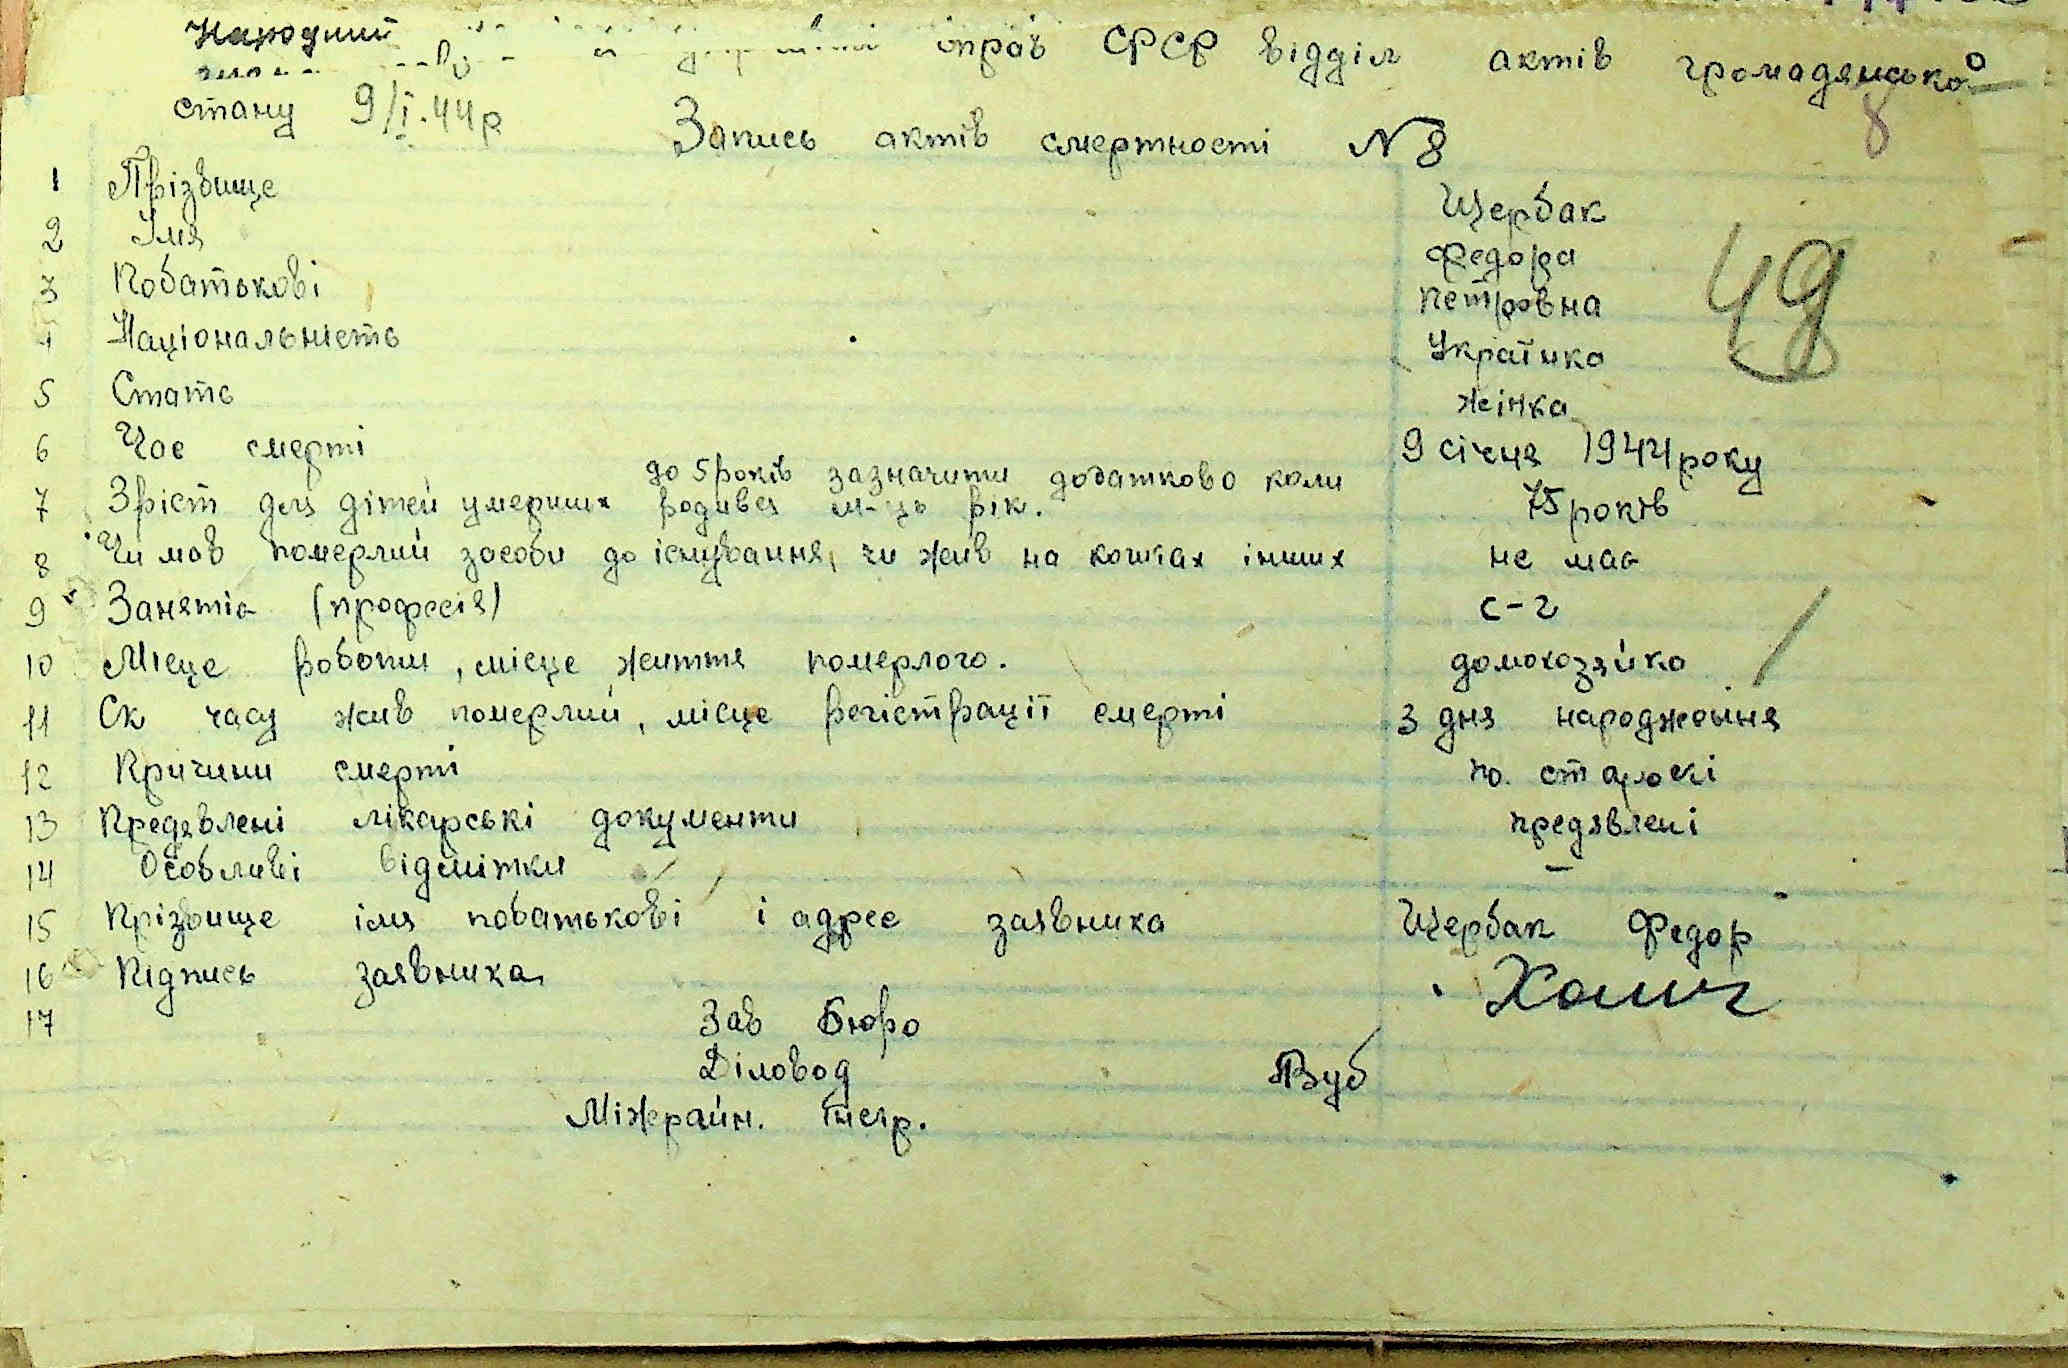 Народний справ СРСР відділ актів громадянсько
стану 9/I.44р
8
Запись актів смертності № 8
1 Прізвище Щербак
2 Імя Федора
3 Побатькові Петровна
4 Національність Українка
5 Стать жінка
6 Час смерті 9 січня 1944 року
до 5 років зазначити додатково коли
7 Зріст для дітей умерших родився м-ць рік. 75 років
8 Чи мав померлий засоби до існування, чи жив на коштах інших не має
9 Заняття (професія) с-г
10 Місце роботи, місце життя померлого. домохозяйка
11 Ск часу жив померлий, місце регістрації смерті З дня народження
12 Причини смерті по старості
13 Предявлені лікарські документи предявлені
14 Особливі відмітки –
15 Прізвище імя побатькові і адрес заявника Щербак Федор
16 Підпись заявника
17
Зав бюро
Діловод
Міжрайн. інспр.